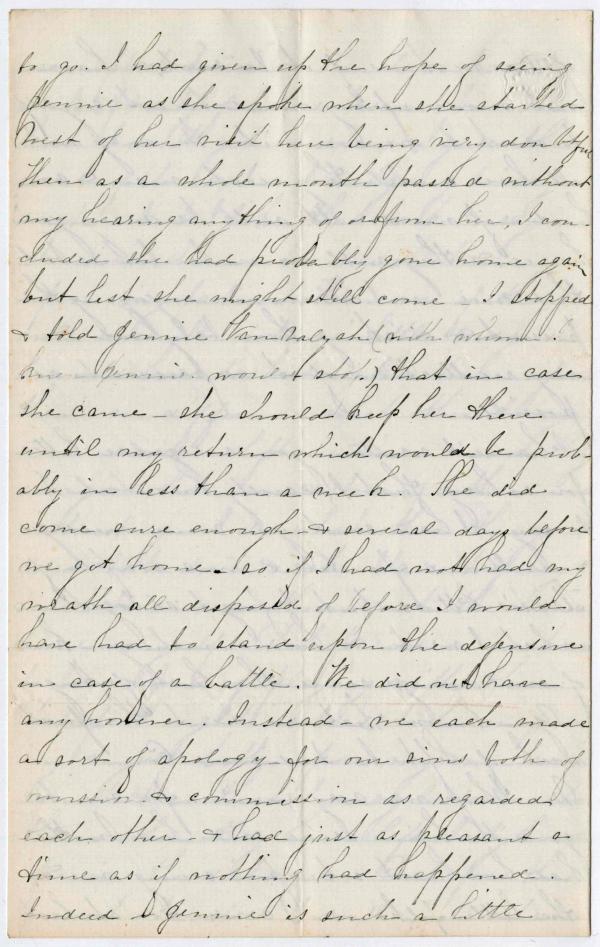 to go. I had given up the hope of seeing
Jennie as she spoke when she started
West of her visit here being very doubtful
Then as a whole month passed without
my hearing anything of or from her, I con-
cluded she had probably gone home again
but lest she might still come - I stopped
& told Jennie Van Valzah (with whom
Jennie would stop.) that in case
she came - she should keep her there
until my return which would be prob-
ably in less than a week. She did
come sure enough - & several days before
we got home - so if I had not had my
wrath all disposed of before I would
have had to stand upon the defensive
in case of a battle. We didn't have
any however. Instead - we each made
a sort of apology for our sins both of
omission & commission as regarded
each other - & had just as pleasant a
time as if nothing had happened.
Indeed Jennie is such a little